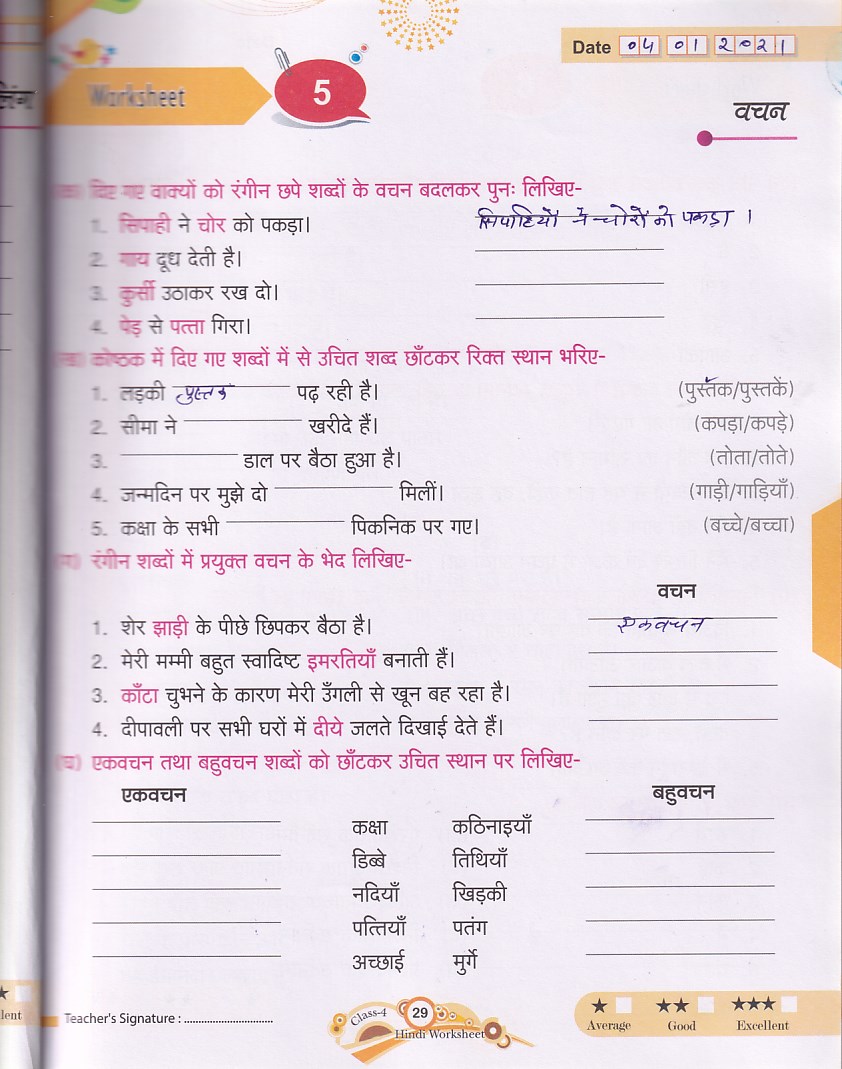 लिंग
Date 04 01 2021
Worksheet 5
वचन
(क) दिए गए वाक्यों को रंगीन छपे शब्दों के वचन बदलकर पुनः लिखिए-
1. सिपाही ने चोर को पकड़ा। सिपाहियों ने चोरों को पकड़ा ।
2. गाय दूध देती है।
3. कुर्सी उठाकर रख दो।
4. पेड़ से पत्ता गिरा।
(ख) कोष्ठक में दिए गए शब्दों में से उचित शब्द छाँटकर रिक्त स्थान भरिए-
1. लड़की पुस्तक पढ़ रही है। (पुस्तक/पुस्तकें)
2. सीमा ने ____________ खरीदे हैं। (कपड़ा/कपड़े)
3. ____________ डाल पर बैठा हुआ है। (तोता/तोते)
4. जन्मदिन पर मुझे दो ____________ मिलीं। (गाड़ी/गाड़ियाँ)
5. कक्षा के सभी ____________ पिकनिक पर गए। (बच्चे/बच्चा)
(ग) रंगीन शब्दों में प्रयुक्त वचन के भेद लिखिए-
वचन
1. शेर झाड़ी के पीछे छिपकर बैठा है। एकवचन
2. मेरी मम्मी बहुत स्वादिष्ट इमरतियाँ बनाती हैं।
3. काँटा चुभने के कारण मेरी उँगली से खून बह रहा है।
4. दीपावली पर सभी घरों में दीये जलते दिखाई देते हैं।
(घ) एकवचन तथा बहुवचन शब्दों को छाँटकर उचित स्थान पर लिखिए-
एकवचन बहुवचन
कक्षा कठिनाइयाँ
डिब्बे तिथियाँ
नदियाँ खिड़की
पत्तियाँ पतंग
अच्छाई मुर्गे
lent
Teacher's Signature : ...............................
Class-4 29 Hindi Worksheet
Average Good Excellent